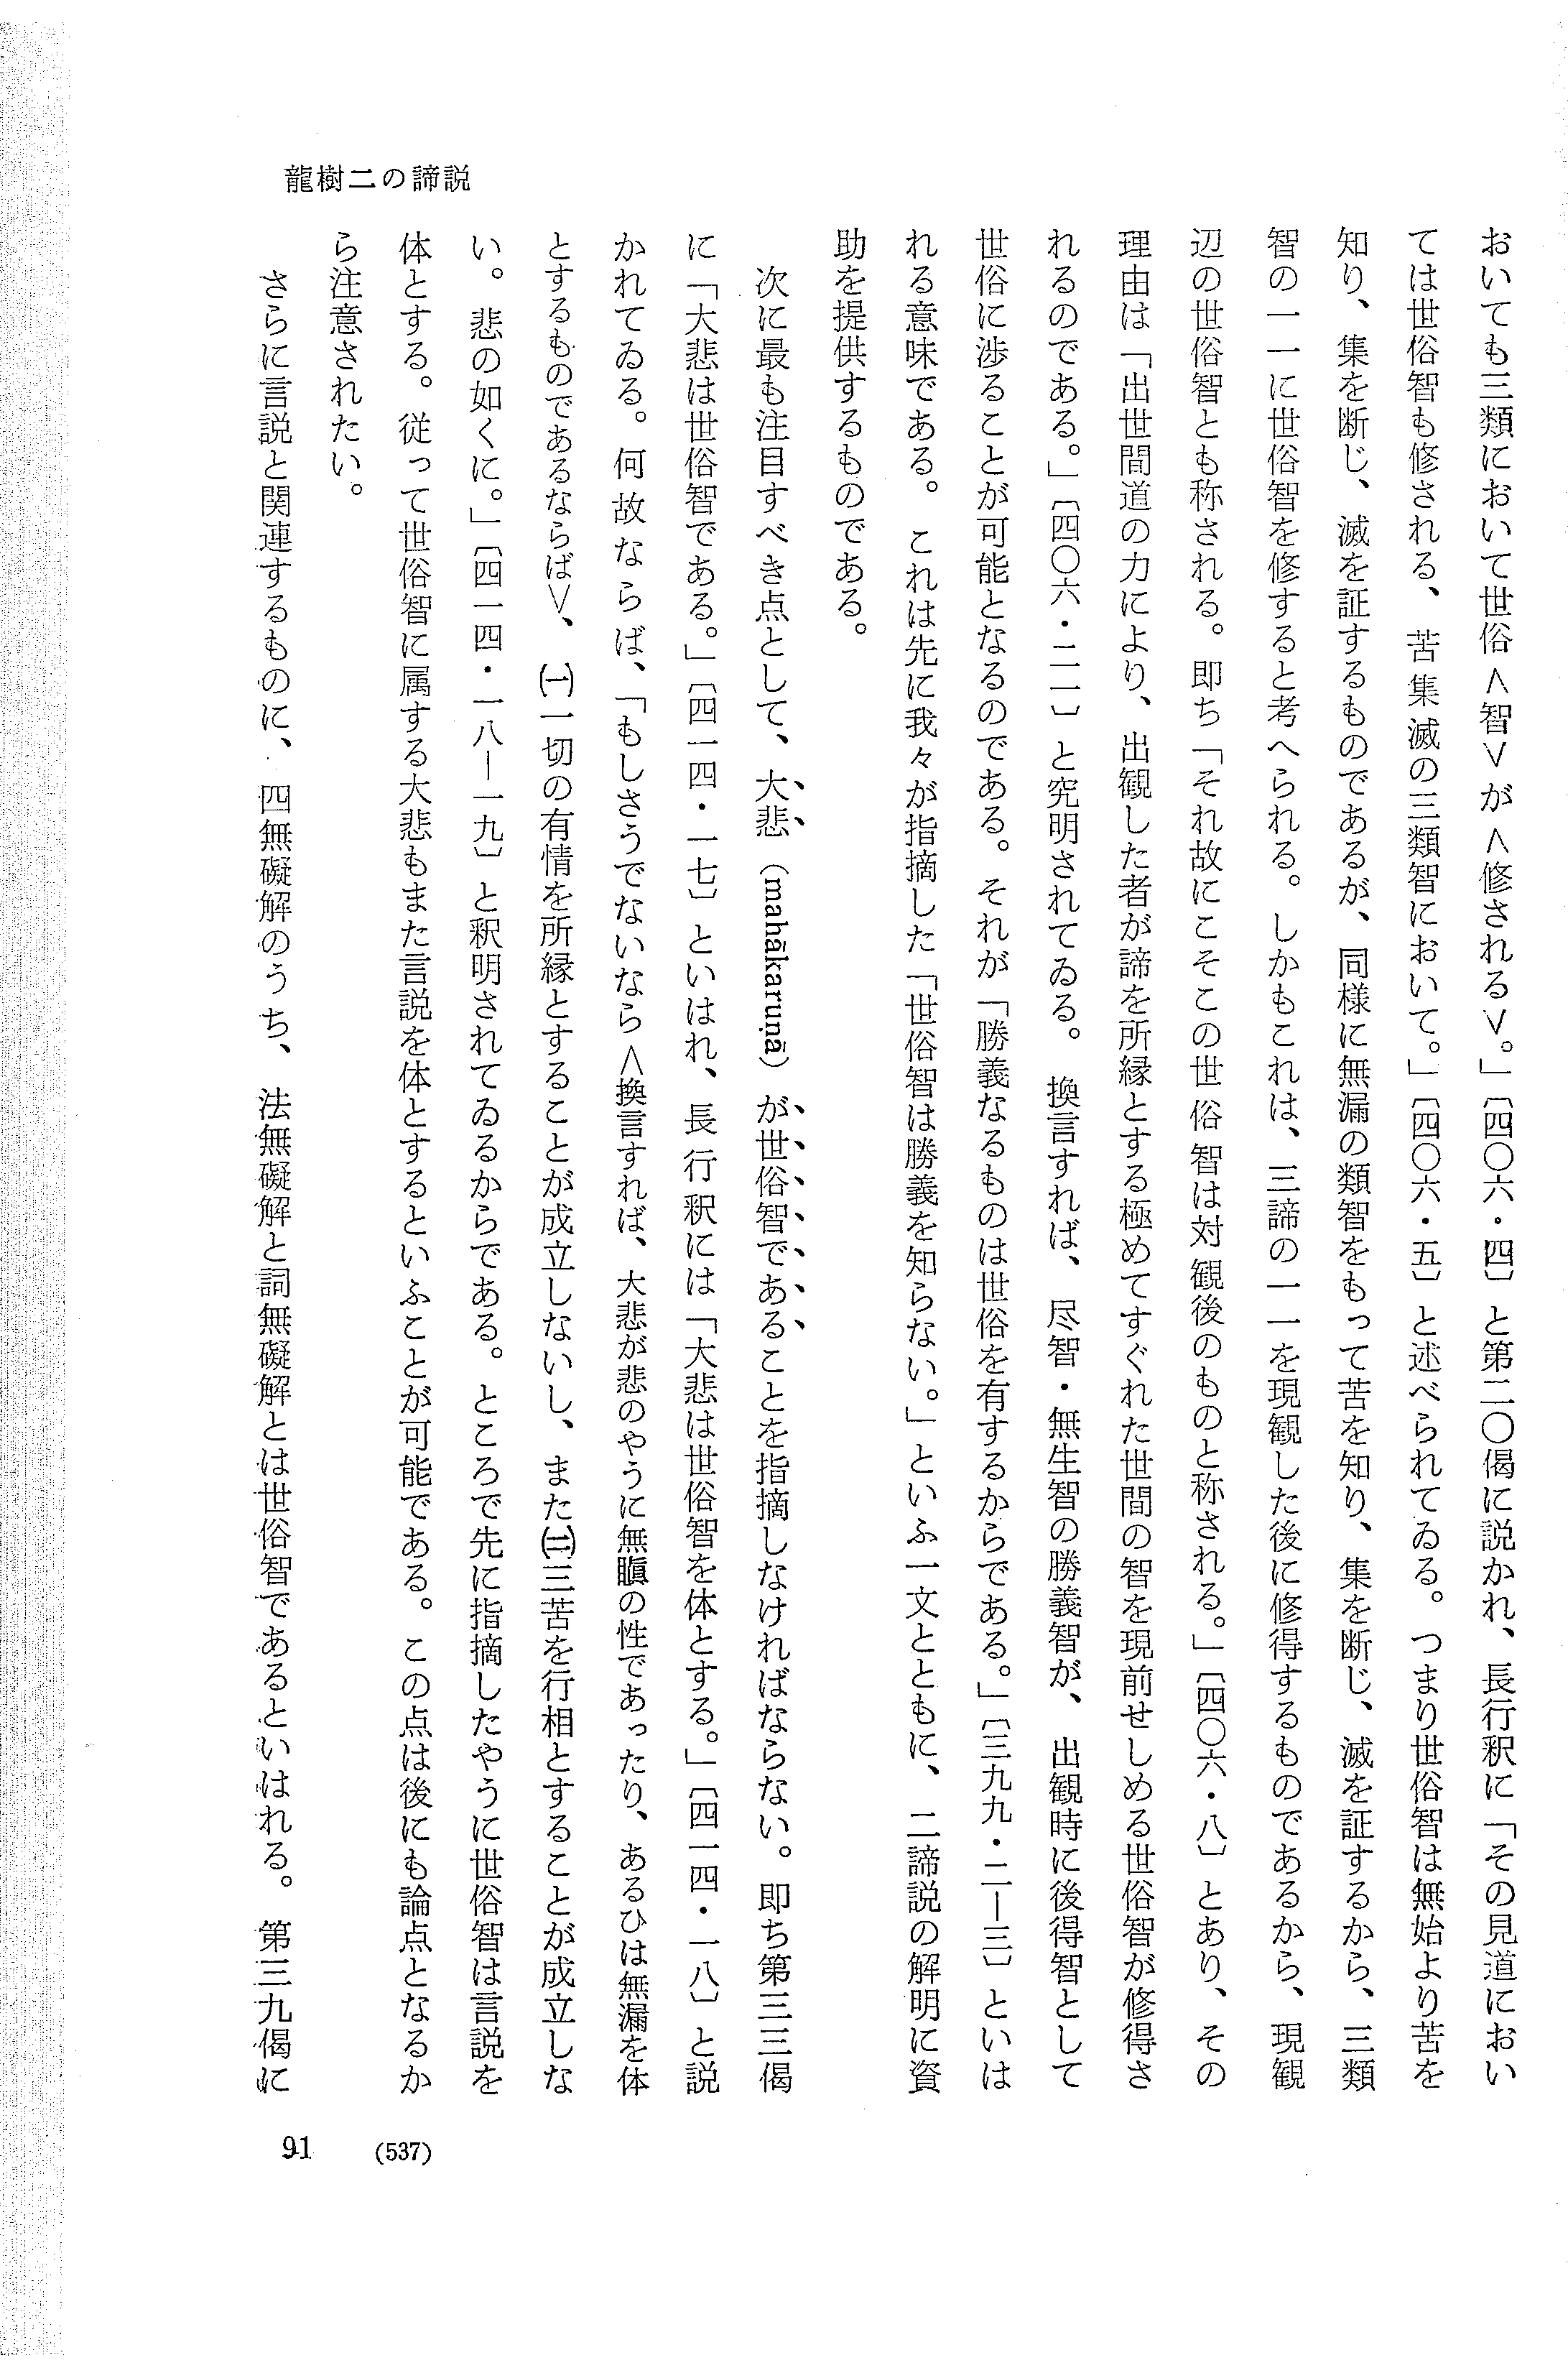 龍樹二の諦説
おいても三類において世俗＜智＞が＜修される＞。」〔四〇六・四〕と第二〇偈に説かれ、長行釈に「その見道におい
ては世俗智も修される、苦集滅の三類智において。」〔四〇六・五〕と述べられてゐる。つまり世俗智は無始より苦を
知り、集を断じ、滅を証するものであるが、同様に無漏の類智をもって苦を知り、集を断じ、滅を証するから、三類
智の一一に世俗智を修すると考へられる。しかもこれは、三諦の一一を現観した後に修得するものであるから、現観
辺の世俗智とも称される。即ち「それ故にこそこの世俗智は対観後のものと称される。」〔四〇六・八〕とあり、その
理由は「出世間道の力により、出観した者が諦を所縁とする極めてすぐれた世間の智を現前せしめる世俗智が修得さ
れるのである。」〔四〇六・二一〕と究明されてゐる。換言すれば、尽智・無生智の勝義智が、出観時に後得智として
世俗に渉ることが可能となるのである。それが「勝義なるものは世俗を有するからである。」〔三九九・二―三〕といは
れる意味である。これは先に我々が指摘した「世俗智は勝義を知らない。」といふ一文とともに、二諦説の解明に資
助を提供するものである。
次に最も注目すべき点として、大悲（mahākaruṇā）が世俗智であることを指摘しなければならない。即ち第三三偈
に「大悲は世俗智である。」〔四一四・一七〕といはれ、長行釈には「大悲は世俗智を体とする。」〔四一四・一八〕と説
かれてゐる。何故ならば、「もしさうでないなら＜換言すれば、大悲が悲のやうに無瞋の性であったり、あるひは無漏を体
とするものであるならば＞、㈠一切の有情を所縁とすることが成立しないし、また㈡三苦を行相とすることが成立しな
い。悲の如くに。」〔四一四・一八―一九〕と釈明されてゐるからである。ところで先に指摘したやうに世俗智は言説を
体とする。従って世俗智に属する大悲もまた言説を体とするといふことが可能である。この点は後にも論点となるか
ら注意されたい。
さらに言説と関連するものに、四無礙解のうち、法無礙解と詞無礙解とは世俗智であるといはれる。第三九偈に
91
(537)